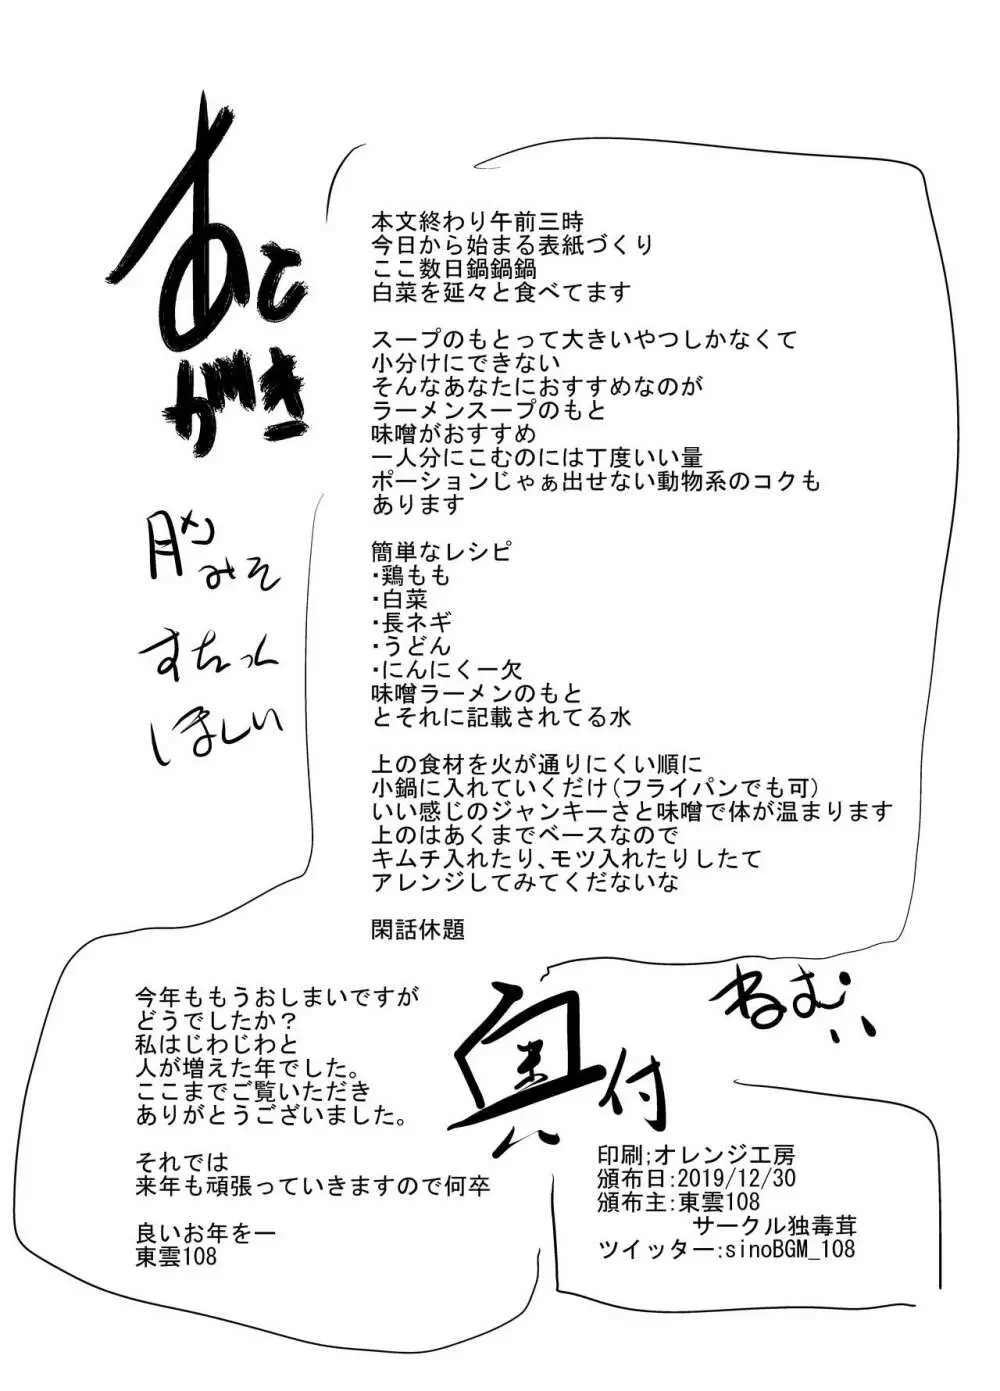 あとがき
本文終わり午前三時
今日から始まる表紙づくり
ここ数日鍋鍋鍋
白菜を延々と食べてます
スープのもとって大きいやつしかなくて
小分けにできない
そんなあなたにおすすめなのが
ラーメンスープのもと
味噌がおすすめ
一人分にこむのには丁度いい量
ポーションじゃぁ出せない動物系のコクも
あります
簡単なレシピ
・鶏もも
・白菜
・長ネギ
・うどん
・にんにく一欠
味噌ラーメンのもと
とそれに記載されてる水
上の食材を火が通りにくい順に
小鍋に入れていくだけ(フライパンでも可)
いい感じのジャンキーさと味噌で体が温まります
上のはあくまでベースなので
キムチ入れたり、モツ入れたりしたて
アレンジしてみてくだないな
閑話休題
みそ
すちっく
ほしい
今年ももうおしまいですが
どうでしたか？
私はじわじわと
人が増えた年でした。
ここまでご覧いただき
ありがとうございました。
それでは
来年も頑張っていきますので何卒
良いお年を一
東雲108
ねむい
奥付
印刷;オレンジ工房
頒布日:2019/12/30
頒布主:東雲108
サークル独毒茸
ツイッター:sinoBGM_108